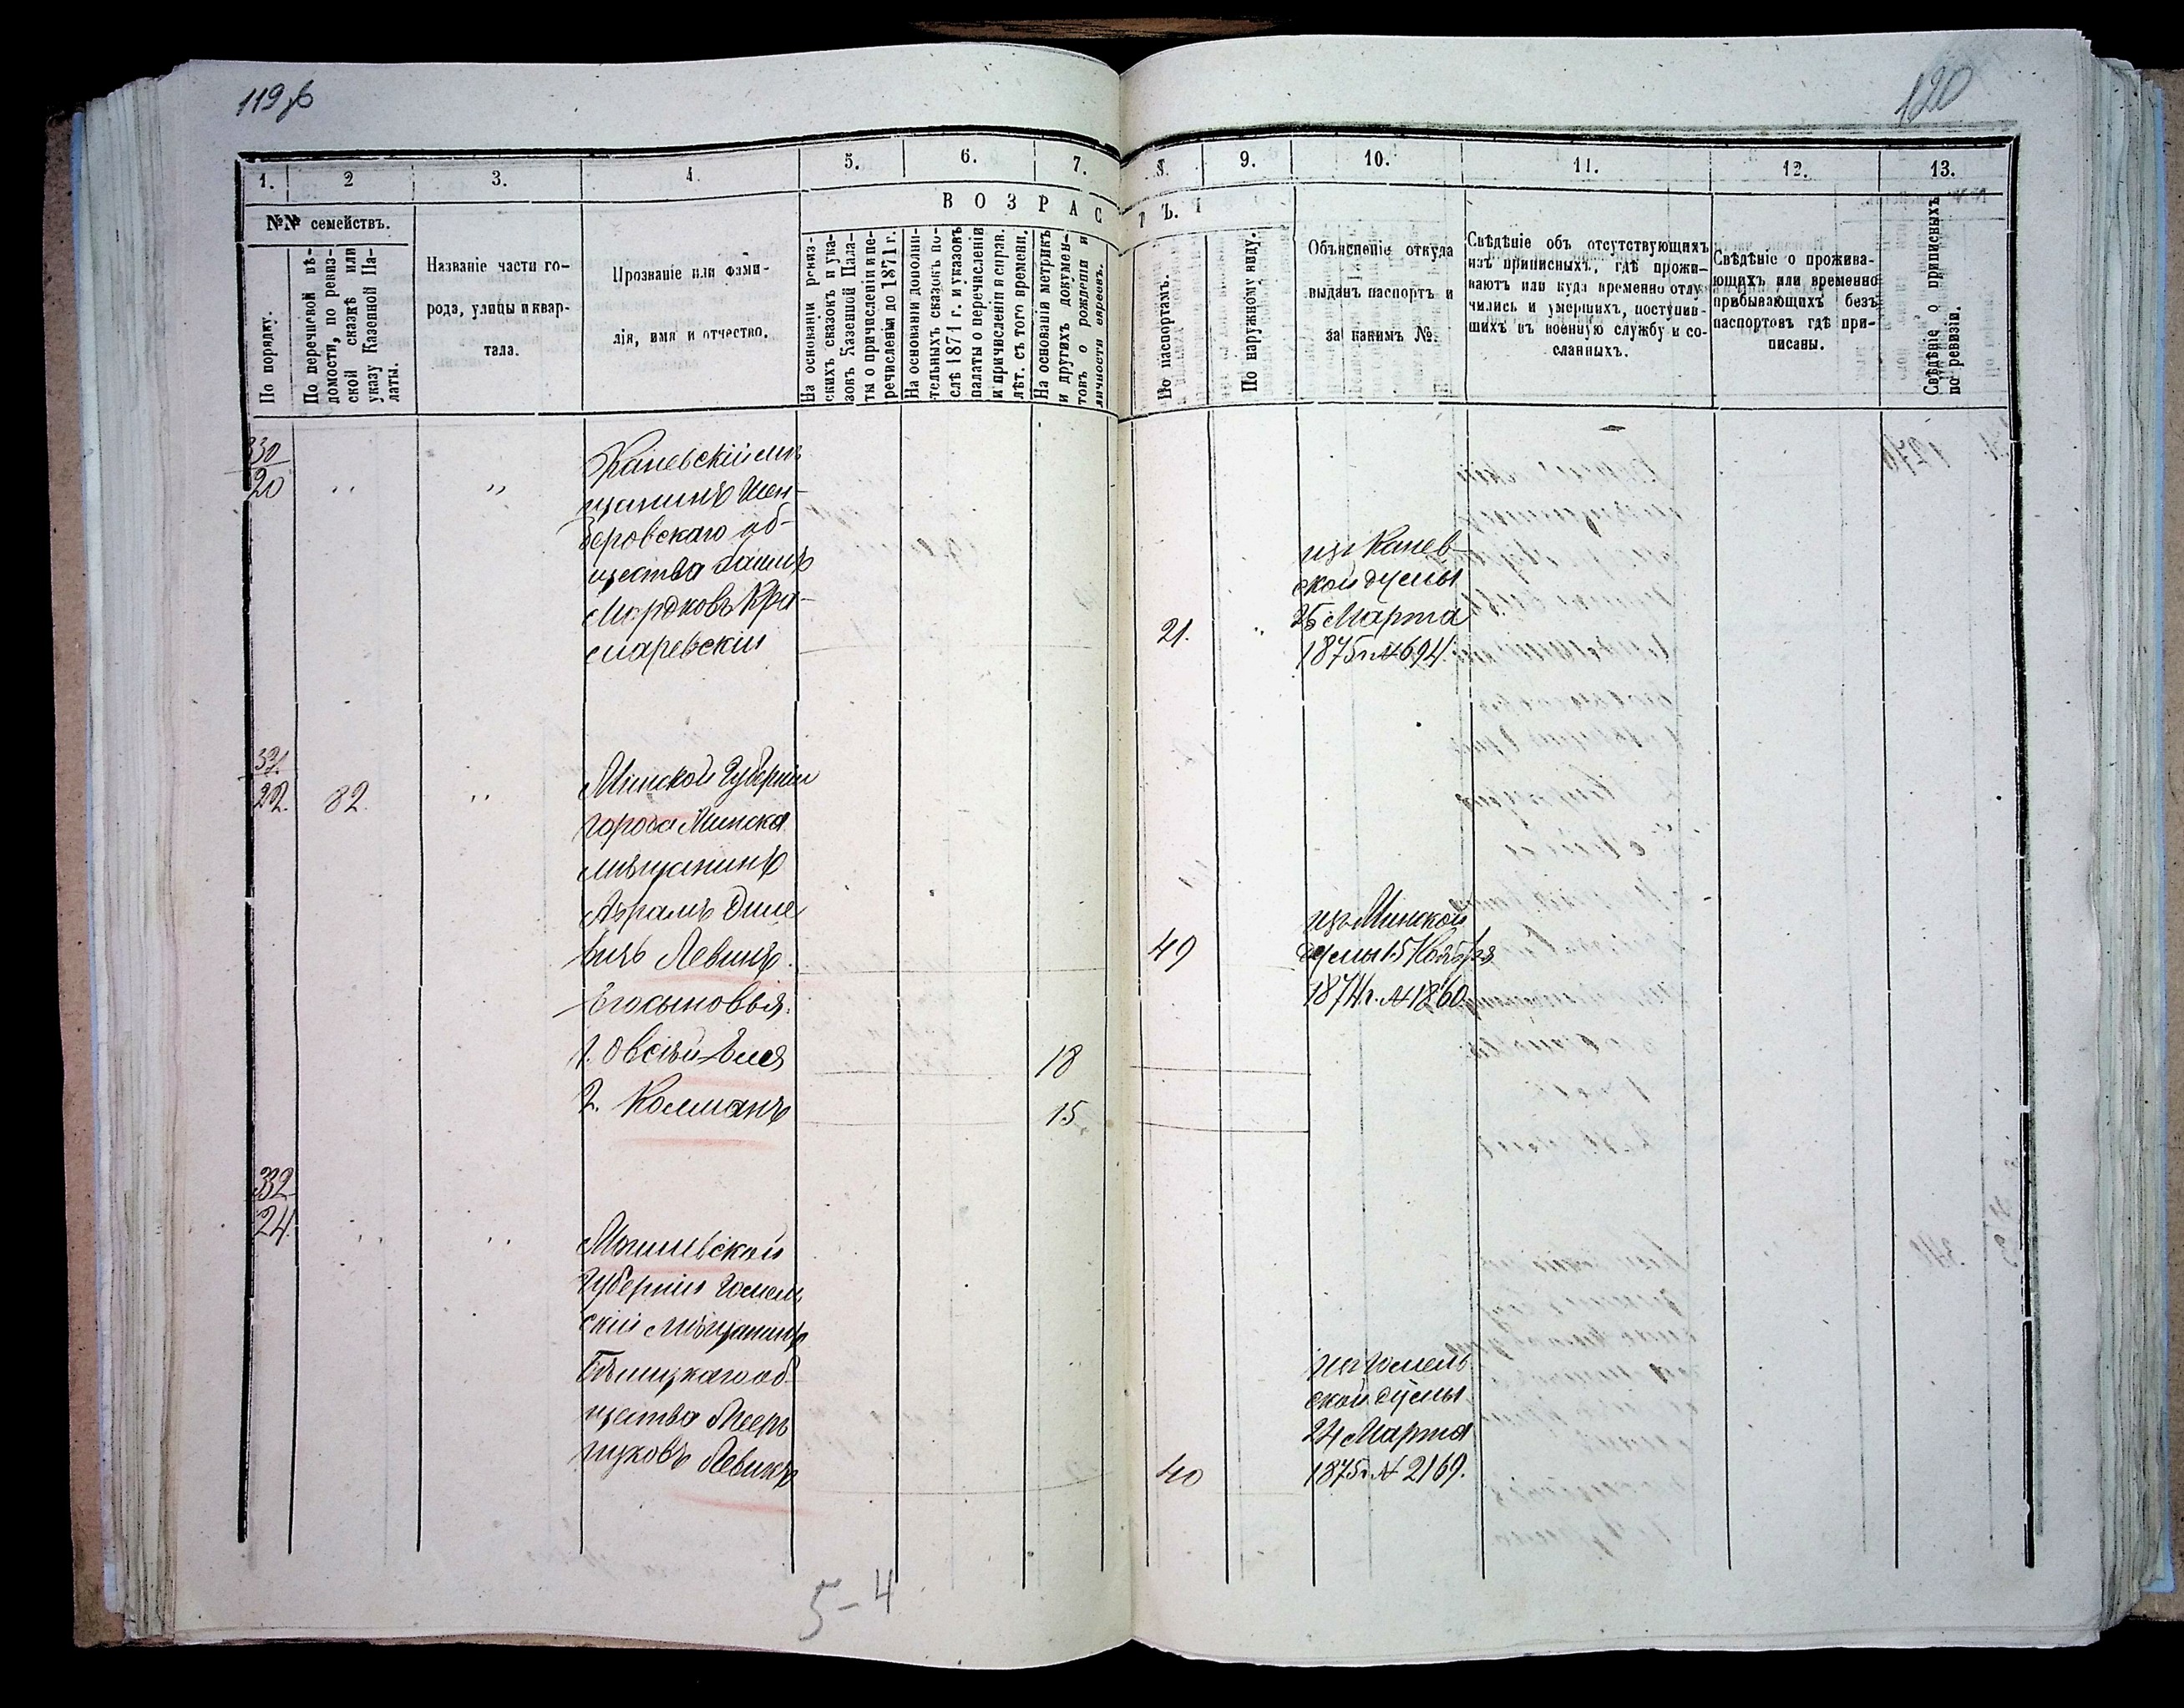 119 об
120
1.
2
3.
4.
5.
6.
7.
8.
9.
10.
11.
12.
13.
№№ семействъ.
ВОЗРАСТЪ.
По порядку.
По перечневой вѣ-
домости, по ревиз-
ской сказкѣ или
указу Казенной Па-
латы.
Названіе части го-
рода, улицы и квар-
тала.
Прозваніе или фами-
лія, имя и отчество.
На основаніи ревиз-
скихъ сказокъ и ука-
зовъ Казенной Пала-
ты о причисленіи и пе-
речисленіи до 1871 г.
На основаніи дополни-
тельныхъ сказокъ по-
слѣ 1871 г. и указовъ
палаты о перечисленіи
и причисленіи в справ.
лѣт. съ того времени.
На основаніи метрикъ
и другихъ докумен-
товъ о рожденіи и
личности евреевъ.
По паспортамъ.
По наружному виду.
Объясненіе откуда
выданъ паспортъ и
за какимъ №.
Свѣдѣніе объ отсутствующихъ
изъ приписныхъ, гдѣ прожи-
ваютъ или куда временно отлу-
чились и умершихъ, поступив-
шихъ въ военную службу и со-
сланныхъ.
Свѣдѣніе о прожива-
ющихъ или временно
прибывающихъ безъ
паспортовъ гдѣ при-
писаны.
Свѣдѣніе о приписныхъ
по ревизіи.
330
20
„
„
Каневскій мѣ-
щанинъ Шен-
деровскаго об-
щества
Мордковъ Кра-
смаревскій
21.
„
изъ Канев-
ской думы
26 Марта
1875 г. № 694.
331.
22.
82.
„
Минской Губерніи
города Минска
мѣщанинъ
Абрамъ
Левинъ.
Его сыновья:
1. Овсѣй-Еля
2. Колманъ
49
18
15
изъ Минской
думы 15 Ноября
1874 г. № 1860.
332
24.
„
„
Могилевской
Губерніи Гомель-
скій мѣщанинъ
Бѣлицкаго об-
щества Мееръ
Ицковъ Левинъ
40
изъ Гомель-
ской думы
24 Марта
1875 г. № 2169.
5-4